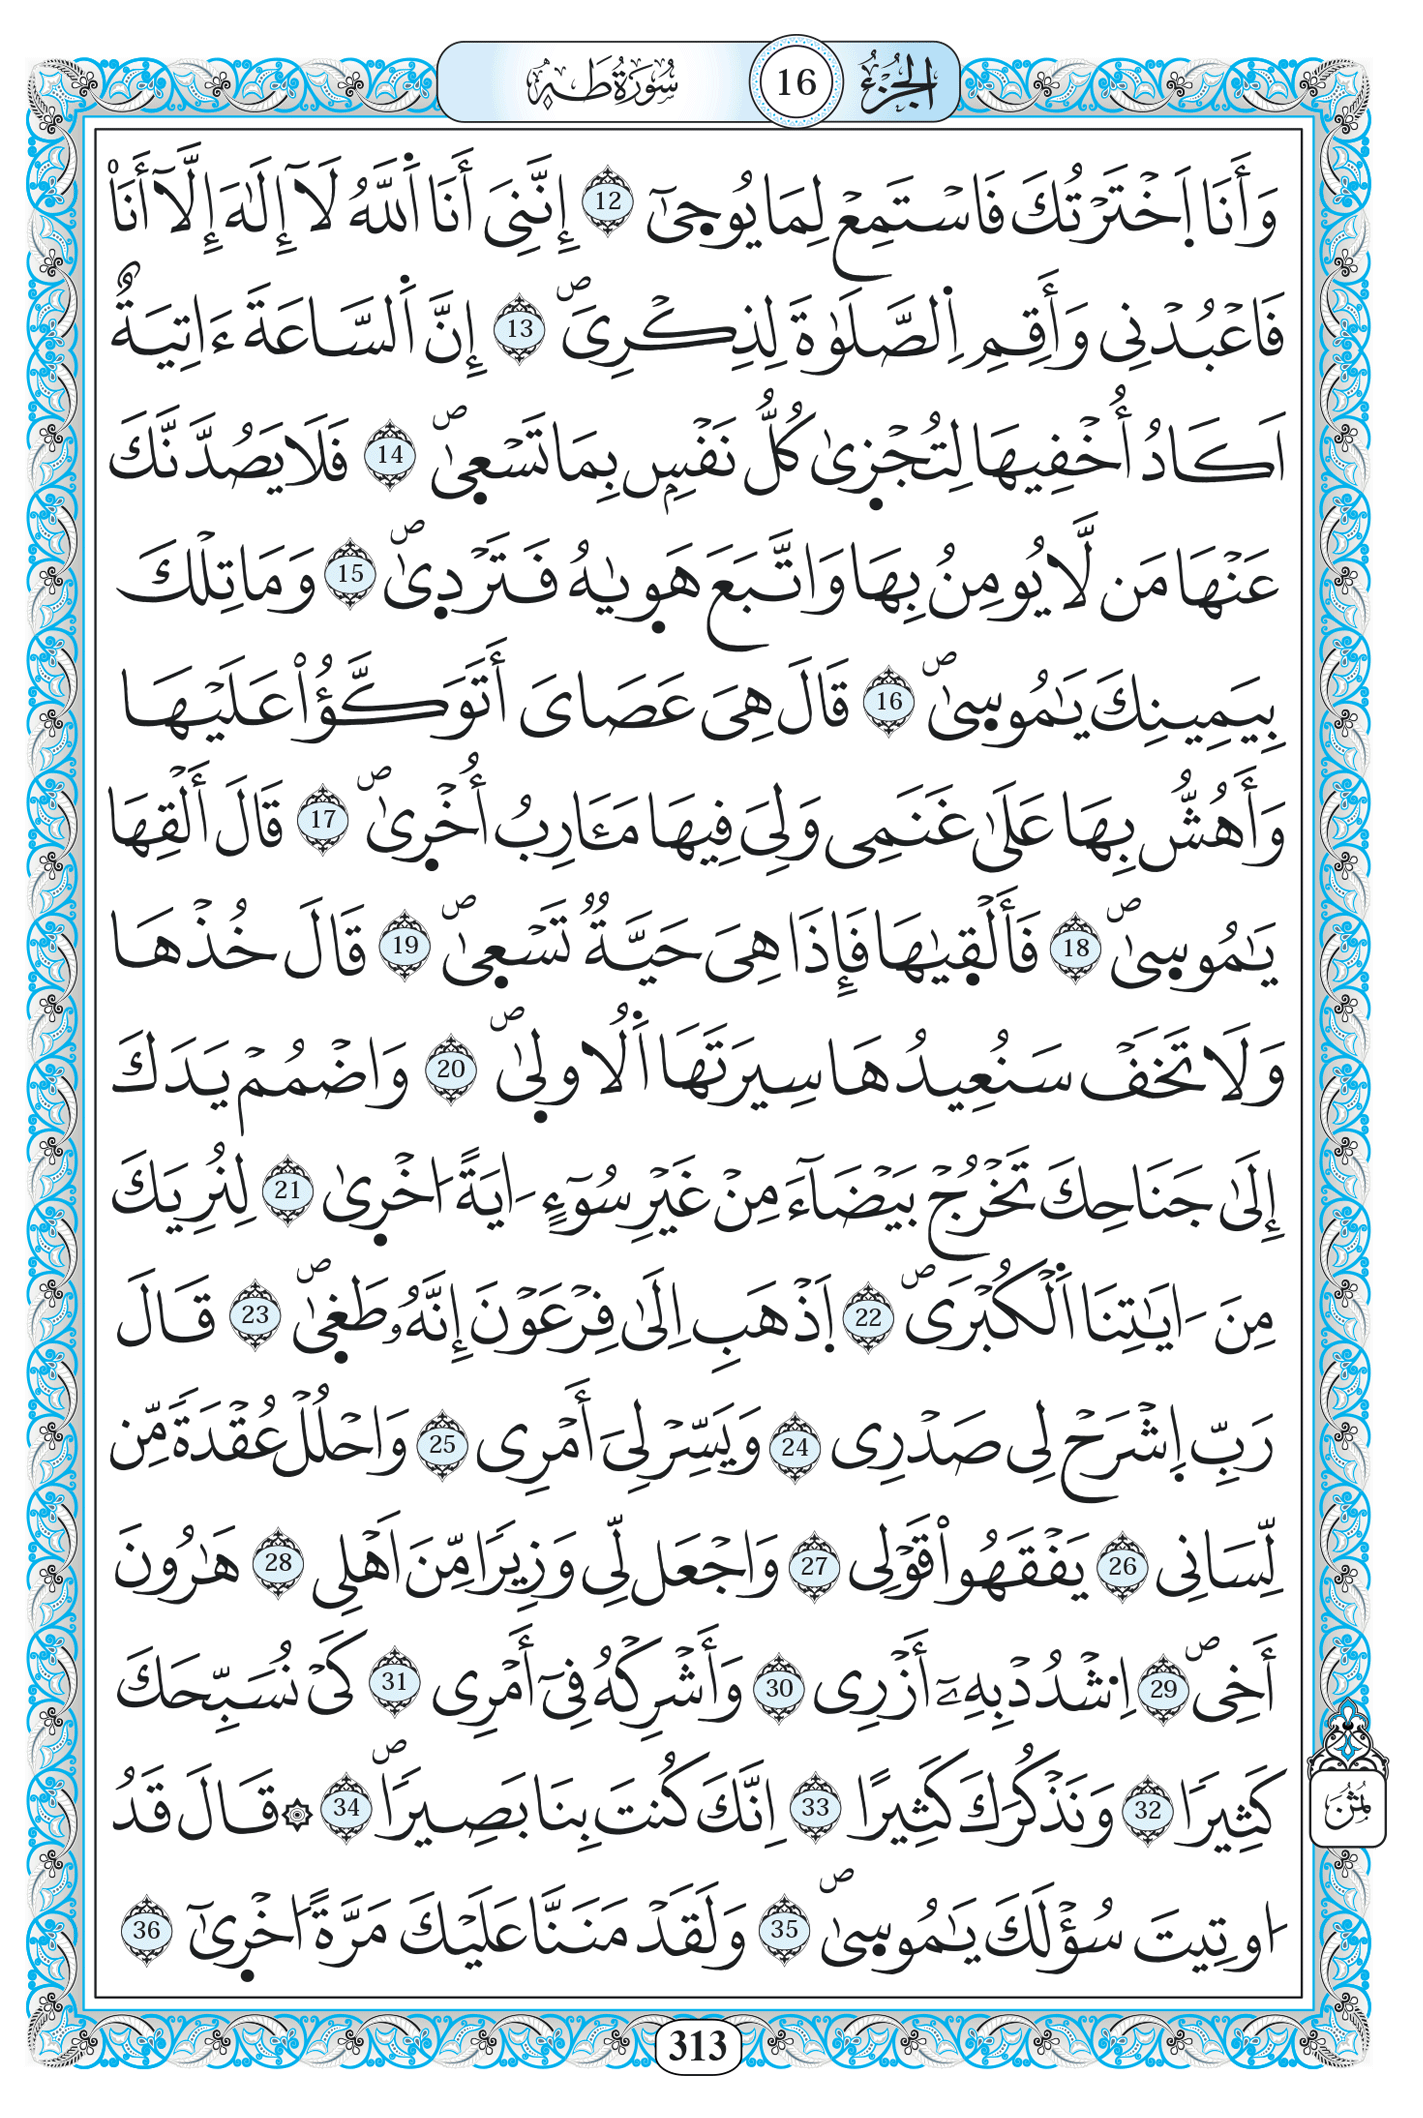 الجزء 16 سورة طه
وَأَنَا اَخْتَرْتُكَ فَاسْتَمِعْ لِمَا يُوحِىٰٓ 12 إِنَّنِى أَنَا اَللَّهُ لَآ إِلَٰهَ إِلَّآ أَنَا۠
فَاعْبُدْنِى وَأَقِمِ اِلصَّلَوٰةَ لِذِكْرِىَ ص 13 إِنَّ اَلسَّاعَةَ ءَاتِيَةٌ
اَكَادُ أُخْفِيهَا لِتُجْزِىٰ كُلُّ نَفْسِۢ بِمَا تَسْعِىٰ ص 14 فَلَا يَصُدَّنَّكَ
عَنْهَا مَن لَّا يُومِنُ بِهَا وَاتَّبَعَ هَوِىٰهُ فَتَرْدِىٰ ص 15 وَمَا تِلْكَ
بِيَمِينِكَ يَٰمُوسِىٰ ص 16 قَالَ هِىَ عَصَاىَ أَتَوَكَّؤُاْ عَلَيْهَا
وَأَهُشُّ بِهَا عَلَىٰ غَنَمِى وَلِىَ فِيهَا مَـَٔارِبُ أُخْرِىٰ ص 17 قَالَ أَلْقِهَا
يَٰمُوسِىٰ ص 18 فَأَلْقِىٰهَا فَإِذَا هِىَ حَيَّةٌ تَسْعِىٰ ص 19 قَالَ خُذْهَا
وَلَا تَخَفْ سَنُعِيدُهَا سِيرَتَهَا اَلُاولِىٰ ص 20 وَاضْمُمْ يَدَكَ
إِلَىٰ جَنَاحِكَ تَخْرُجْ بَيْضَآءَ مِنْ غَيْرِ سُوٓءٍ ـَايَةً اَخْرِىٰ 21 لِنُرِيَكَ
مِنَ ـَايَٰتِنَا اَلْكُبْرَى ص 22 اَذْهَبِ اِلَىٰ فِرْعَوْنَ إِنَّهُۥ طَغِىٰ ص 23 قَالَ
رَبِّ اِشْرَحْ لِى صَدْرِى 24 وَيَسِّرْ لِىَ أَمْرِى 25 وَاحْلُلْ عُقْدَةً مِّن
لِّسَانِى 26 يَفْقَهُواْ قَوْلِى 27 وَاجْعَل لِّى وَزِيرًا مِّنَ اَهْلِى 28 هَٰرُونَ
أَخِى ص 29 اِشْدُدْ بِهِۦٓ أَزْرِى 30 وَأَشْرِكْهُ فِىٓ أَمْرِى 31 كَىْ نُسَبِّحَكَ
كَثِيرًا 32 وَنَذْكُرَكَ كَثِيرًا 33 اِنَّكَ كُنتَ بِنَا بَصِيرًا ص 34 ۞ قَالَ قَدُ
ثمن
اوتِيتَ سُؤْلَكَ يَٰمُوسِىٰ ص 35 وَلَقَدْ مَنَنَّا عَلَيْكَ مَرَّةً اَخْرِىٰٓ 36
313